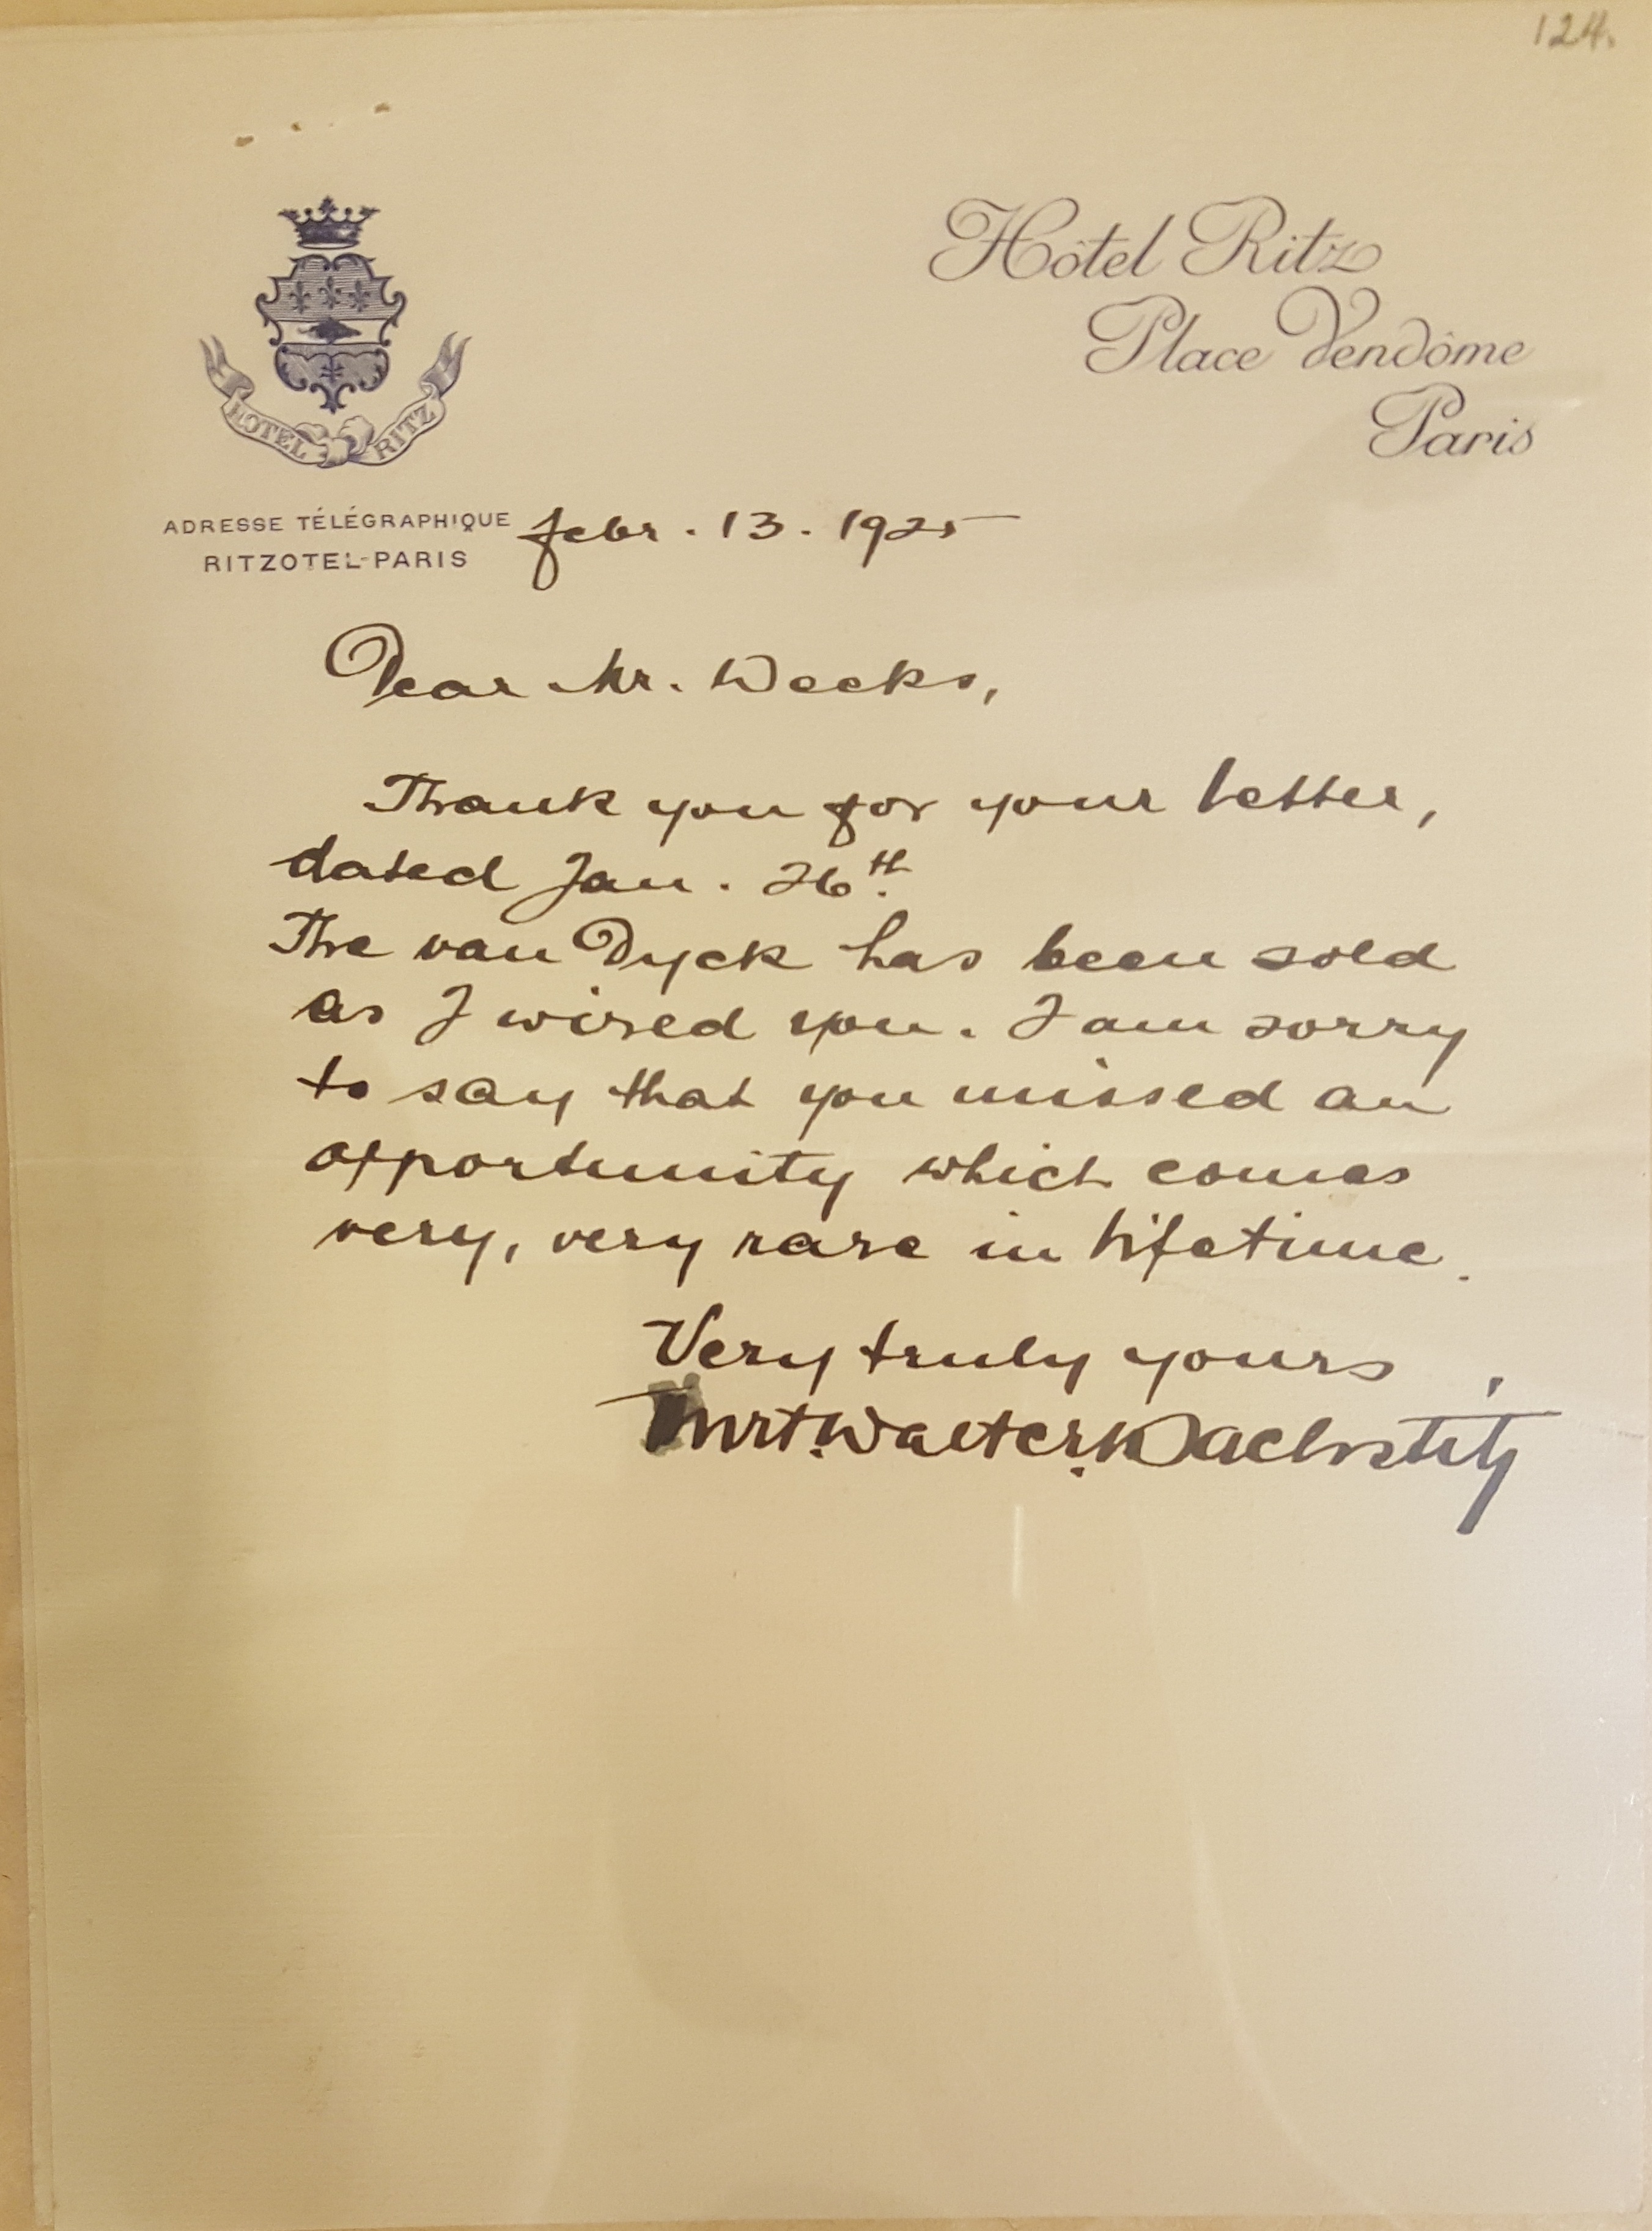 124.
Hôtel Ritz
Place Vendôme
Paris
HOTEL RITZ
ADRESSE TÉLÉGRAPHIQUE
RITZOTEL-PARIS
febr. 13. 1925
Dear Mr. Weeks,
Thank you for your letter,
dated Jan. 26th.
The van Dyck has been sold
as I wired you. I am sorry
to say that you missed an
opportunity which comes
very, very rare in lifetime.
Very truly yours,
Kurt Walter Bachstitz